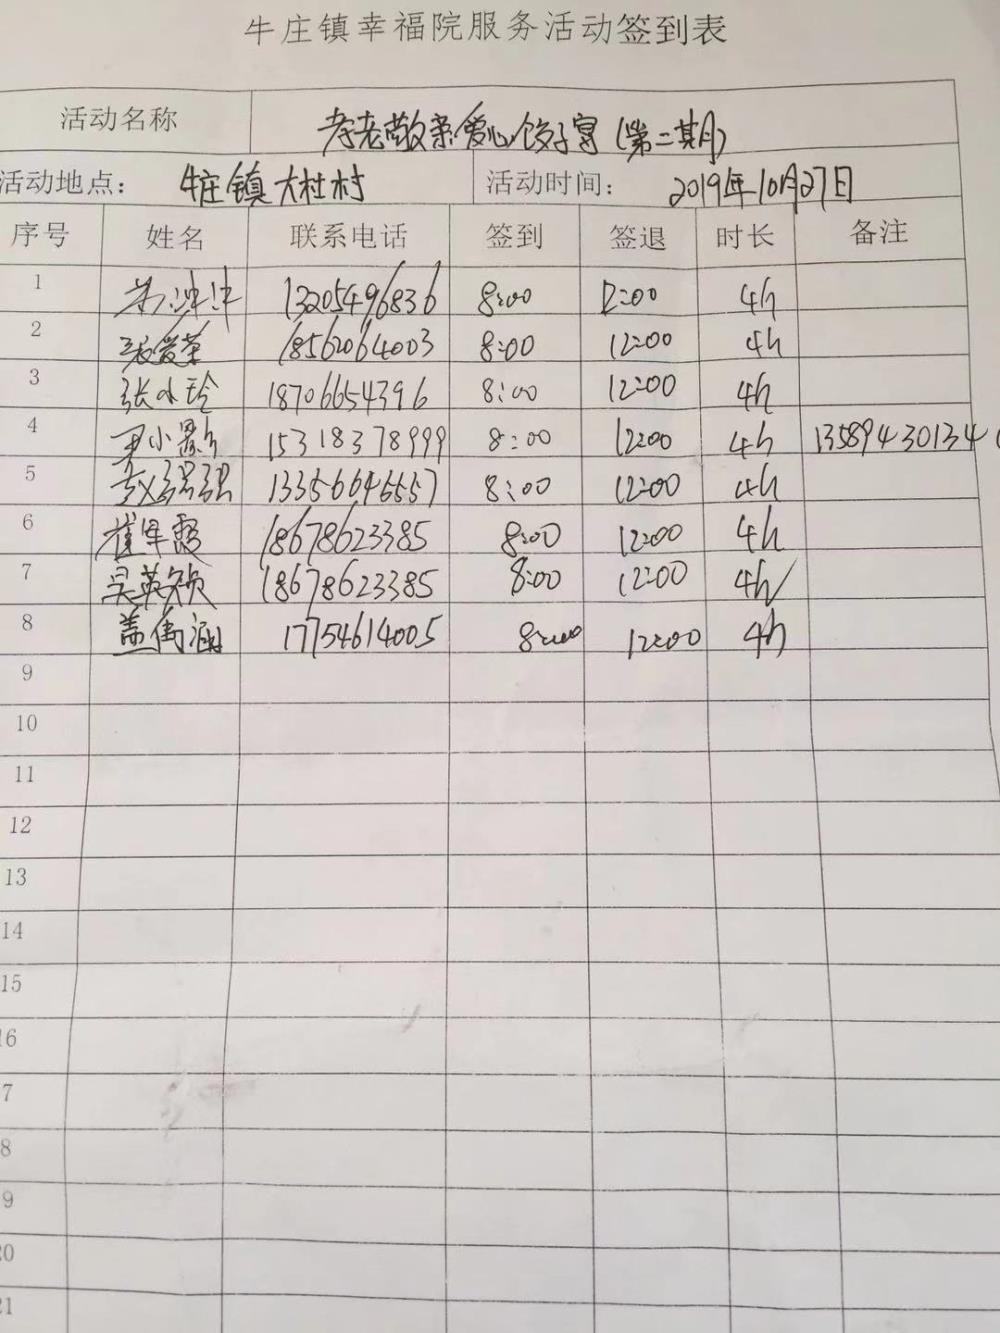 牛庄镇幸福院服务活动签到表
活动名称 孝老敬亲爱心饺子宴(第二期)
活动地点: 牛庄镇大杜村 活动时间: 2019年10月27日
序号 姓名 联系电话 签到 签退 时长 备注
1 13205496836 8:00 12:00 4h
2 张爱荣 18562064003 8:00 12:00 4h
3 张小玲 18706654396 8:00 12:00 4h
4 尹小影 15318378999 8:00 12:00 4h 13589430134
5 赵强强 13356646557 8:00 12:00 4h
6 崔军霞 18678623385 8:00 12:00 4h
7 吴英颖 18678623385 8:00 12:00 4h
8 盖雨涵 17754614005 8:00 12:00 4h
9
10
11
12
13
14
15
16
7
8
9
20
21